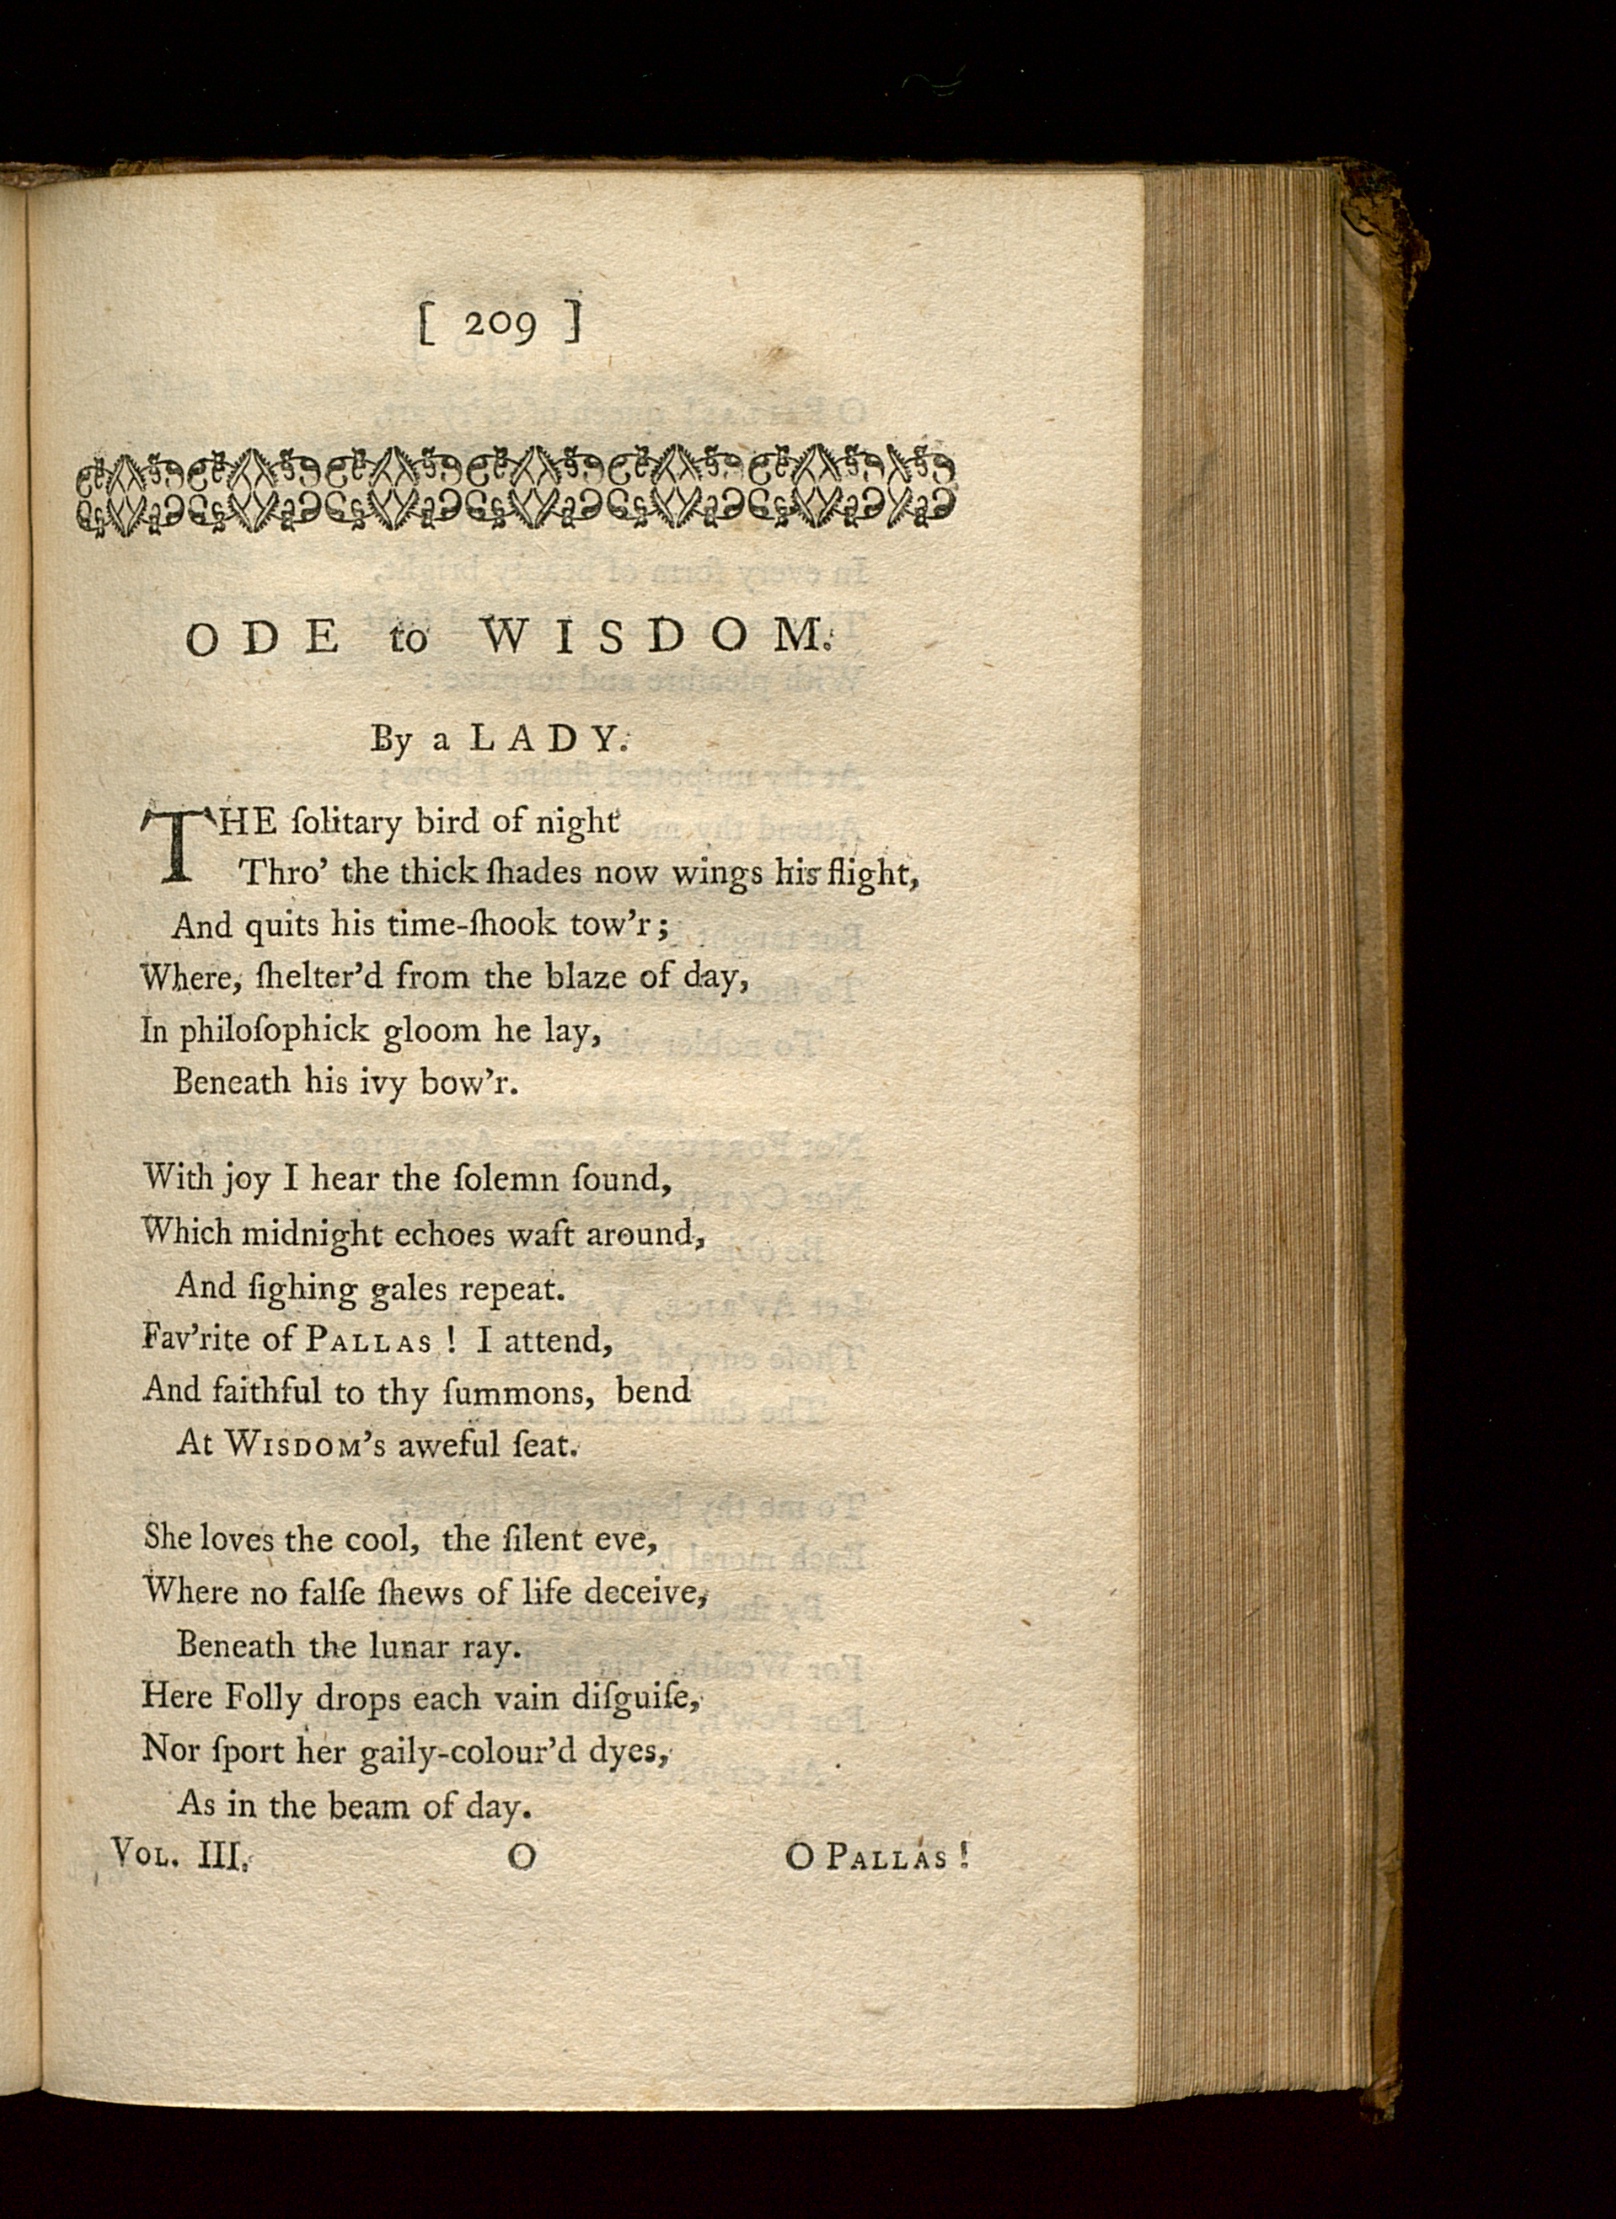 [ 209 ]
ODE to WISDOM.
By a LADY.
THE ſolitary bird of night
Thro' the thick ſhades now wings his flight,
And quits his time-ſhook tow'r;
Where, ſhelter'd from the blaze of day,
In philoſophick gloom he lay,
Beneath his ivy bow'r.
With joy I hear the ſolemn ſound,
Which midnight echoes waft around,
And ſighing gales repeat.
Fav'rite of PALLAS! I attend,
And faithful to thy ſummons, bend
At WISDOM's aweful ſeat.
She loves the cool, the ſilent eve,
Where no falſe ſhews of life deceive,
Beneath the lunar ray.
Here Folly drops each vain diſguiſe,
Nor ſport her gaily-colour'd dyes,
As in the beam of day.
VOL. III. O O PALLAS!